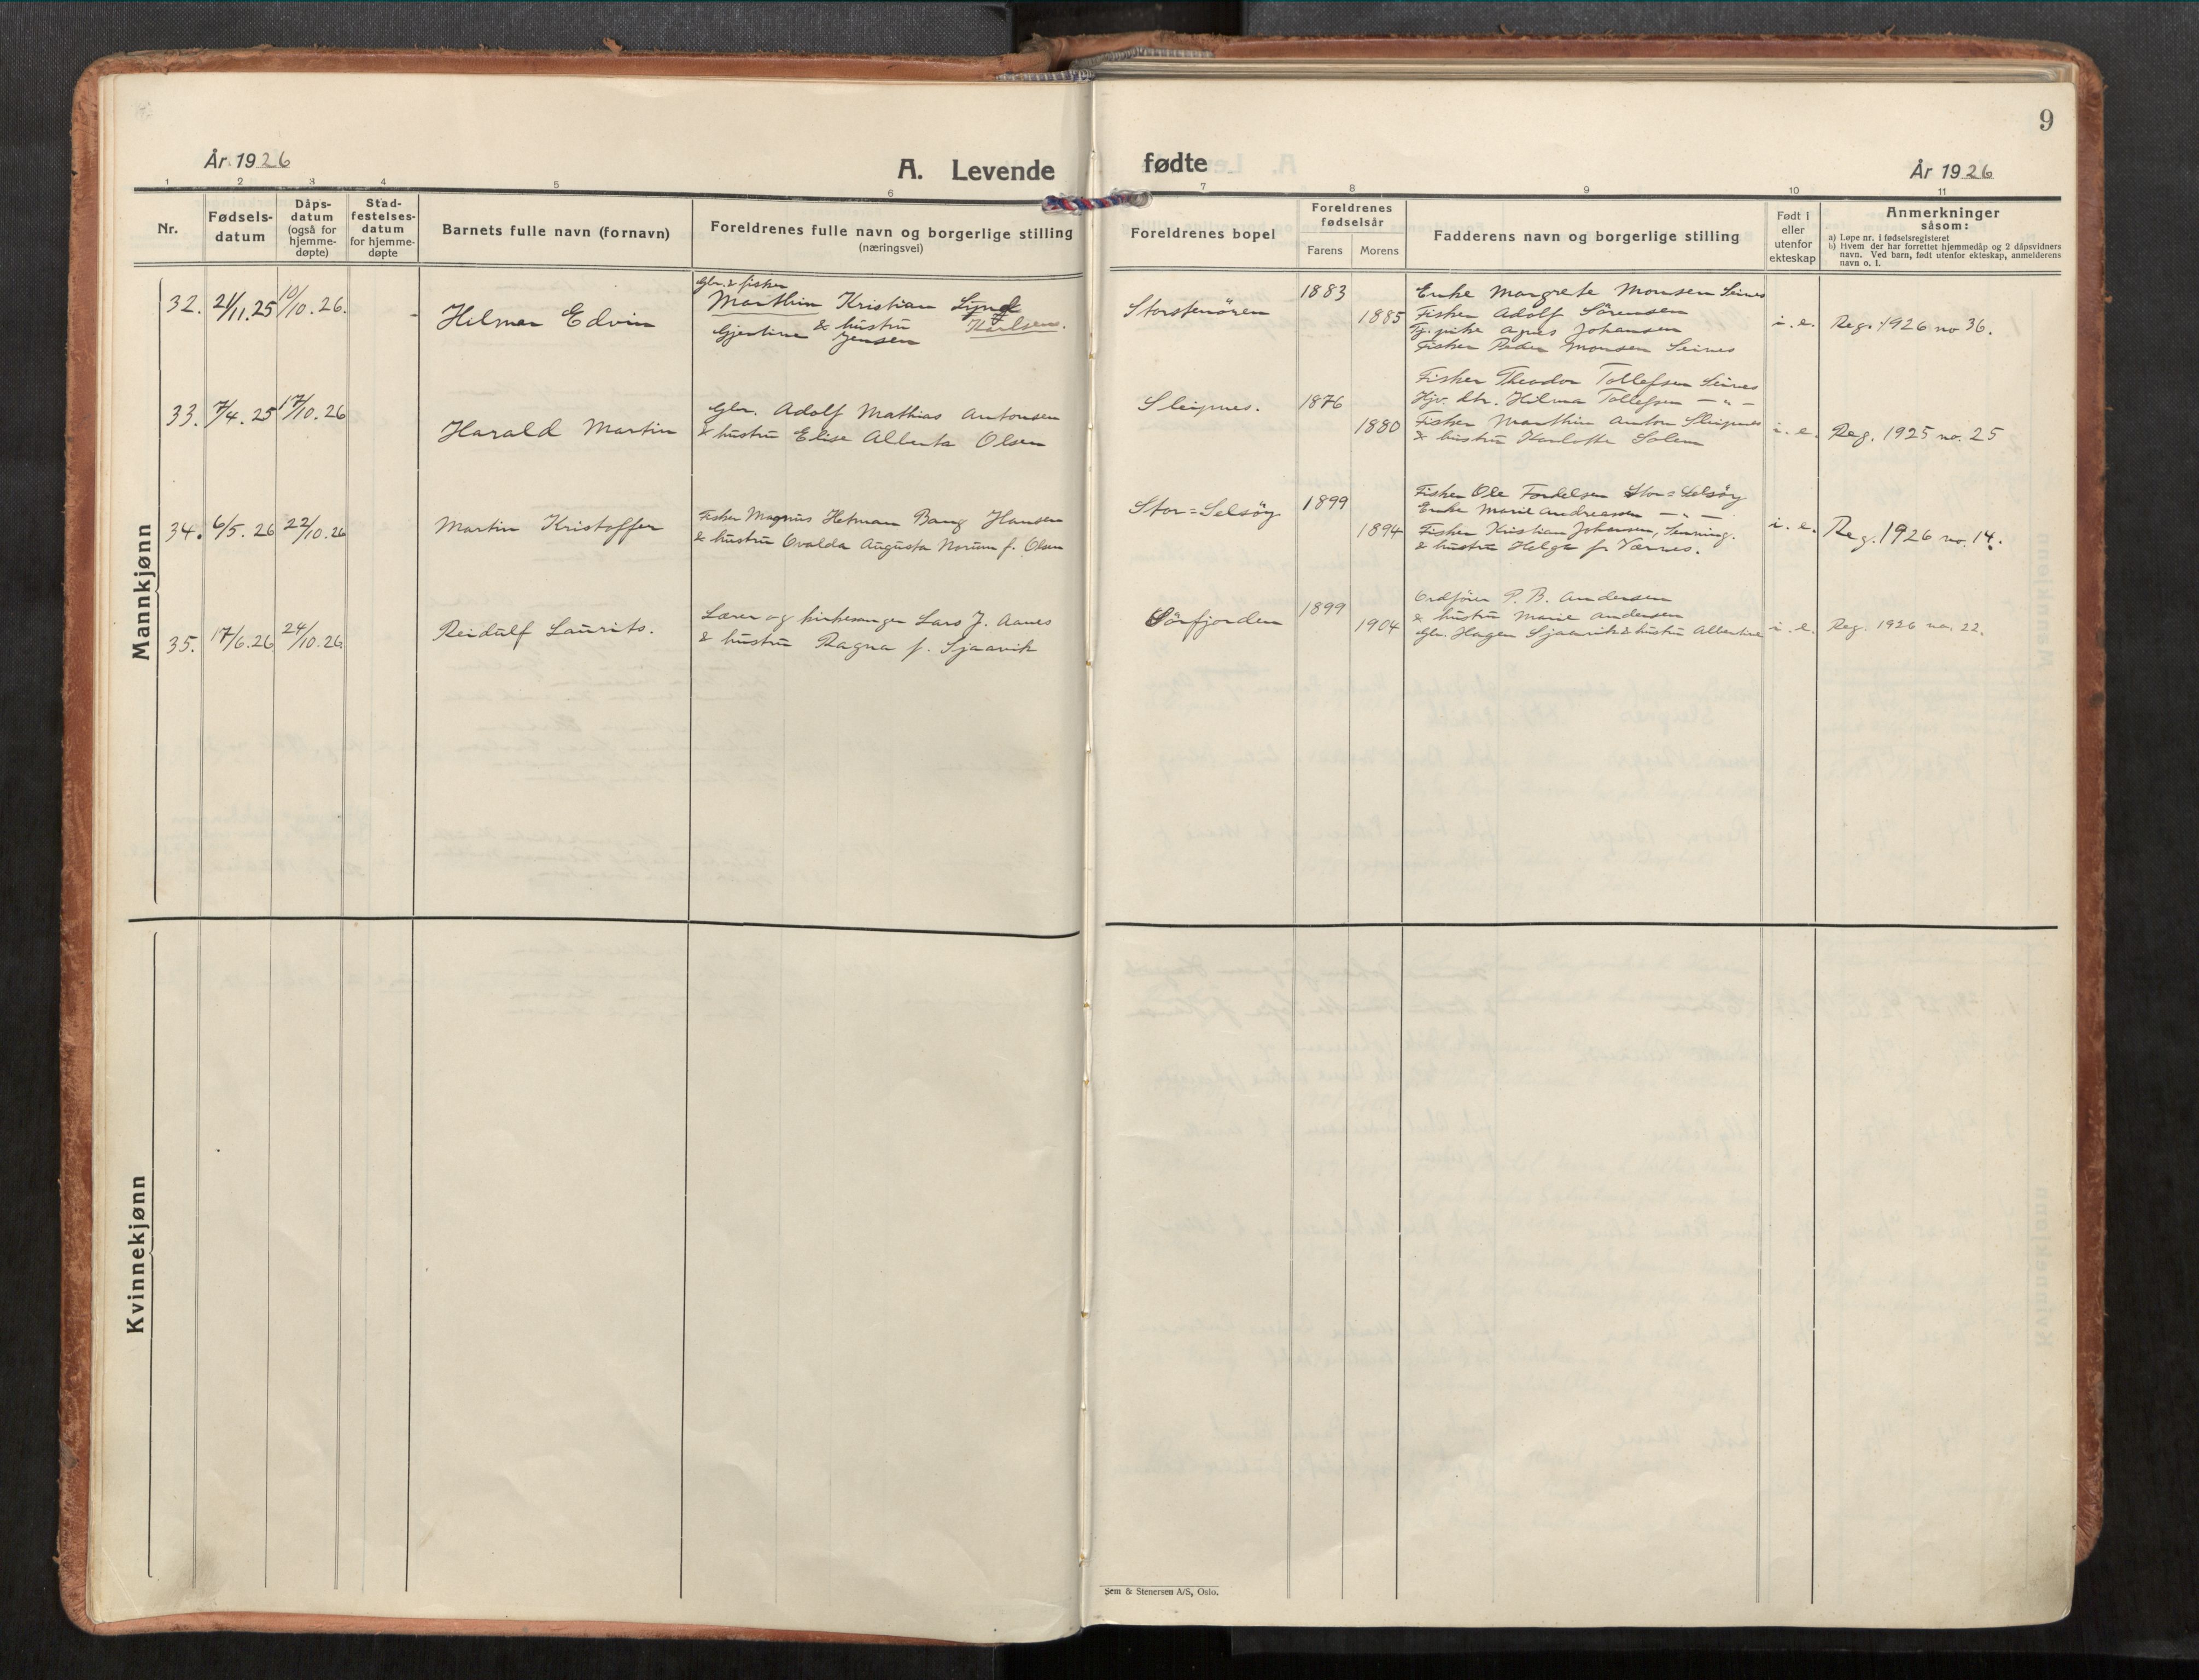 9
År 1926
A. Levende
fødte
År 1926
1 2 3 4 5 6 7 8 9 10 11
Nr.
Fødsels-
datum
Dåps-
datum
(også for
hjemme-
døpte)
Stad-
festelses-
datum
for hjemme-
døpte
Barnets fulle navn (fornavn)
Foreldrenes fulle navn og borgerlige stilling
(næringsvei)
Foreldrenes bopel
Foreldrenes
fødselsår
Farens Morens
Fadderens navn og borgerlige stilling
Født i
eller
utenfor
ekteskap
Anmerkninger
såsom:
a) Løpe nr. i fødselsregisteret
b) Hvem der har forrettet hjemmedåp og 2 dåpsvidners
navn. Ved barn, født utenfor ekteskap, anmelderens
navn o. l.
Mannkjønn
32. 21/11.25 10/10.26. -
Hilmar Edvin
Gbr. & fisker
Marthin Kristian
& hustru Karlsen.
Gjertine Jensen
Storstenören
1883
1885
Enke Margrete Monsen Seines
Fisker Adolf Sörensen
Tj.pike Agnes Johansen
Fisker Peder Monsen Seines
i. e.
Reg. 1926 no 36.
33. 7/4. 25 17/10. 26
Harald Martin
Gbr. Adolf Mathias Antonsen
& hustru Elise Alberta Olsen
Sleipnes.
1876
1880
Fisker Theodor Tollefsen Seines
Hjv. dtr. Hilma Tollefsen — " —
Fisker Marthin Anton Sleipnes
& hustru Karlotte Solem
i. e.
Reg. 1925 no. 25
34. 6/5. 26 22/10. 26
Martin Kristoffer
Fisker Magnus Hetman Bang Hansen
& hustru Ovalda Augusta Norum f. Olsen
Stor=Selsöy
1899
1894
Fisker Ole Stor=Selsöy
Enke Marie Andreassen — " —
Fisker Kristian Johansen,
& hustru Helga f. Værnes.
i. e.
Reg. 1926 no. 14.
35. 17/6. 26 24/10. 26
Reidulf Laurits.
Lærer og kirkesanger Lars J. Aanes
& hustru Ragna f. Sjaavik
Sörfjorden
1899
1904
Ordförer P. B. Andersen
& hustru Marie Andersen
Gbr. Hagen Sjaavik & hustru Albertine
i. e.
Reg. 1926 no. 22.
Kvinnekjønn
Sem & Stenersen A/S, Oslo.